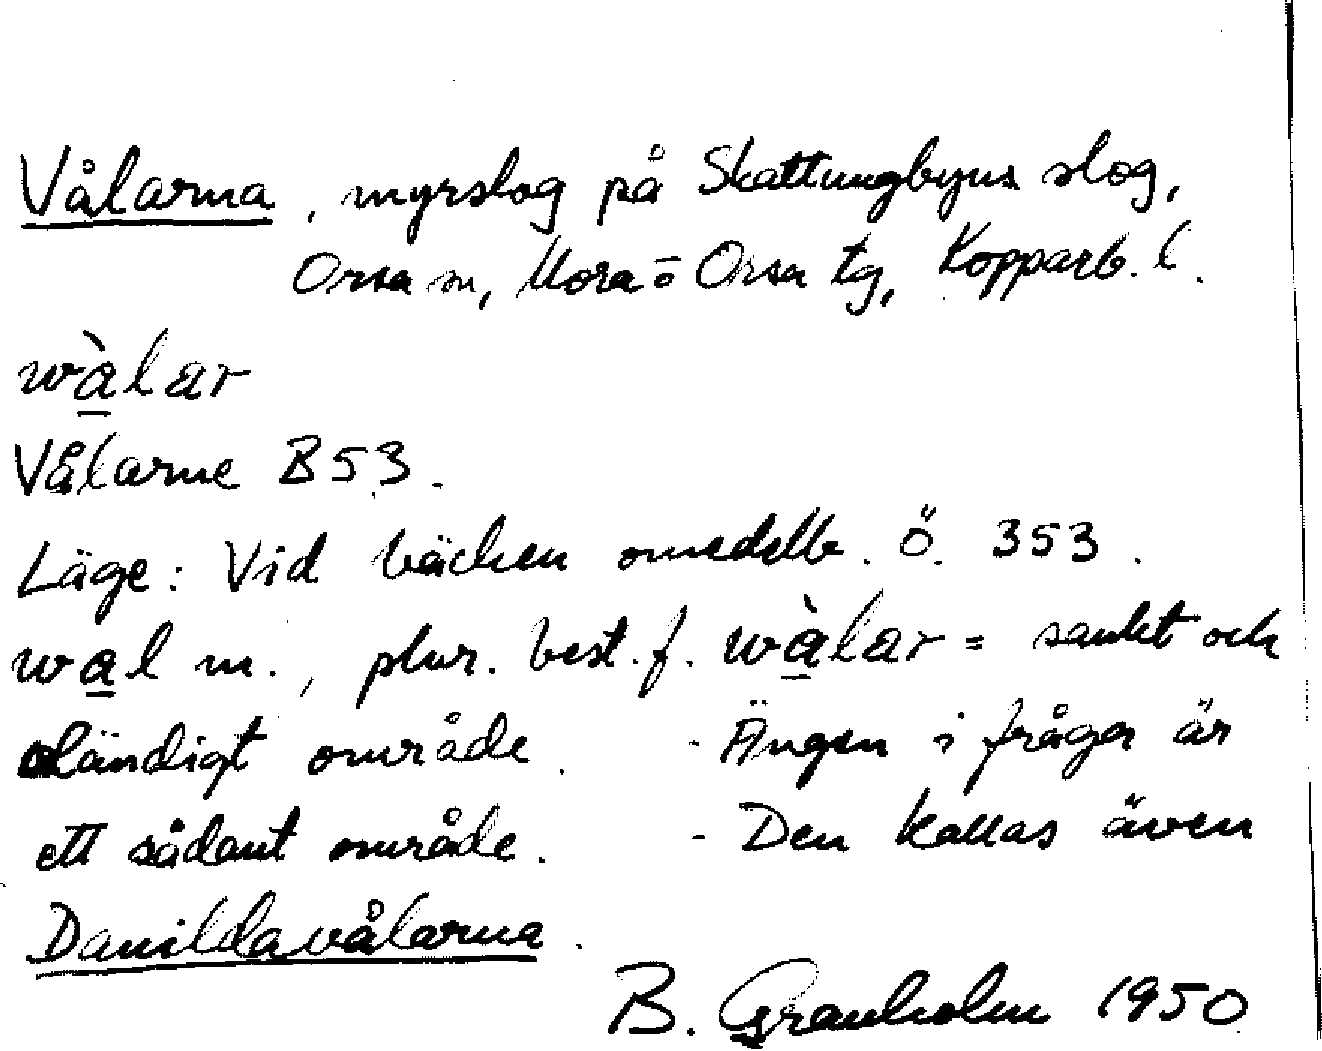 Vålarna, myrslog på Skattungbyns slog,
Orsa sn, Mora-o Orsa tg, Kopparb. l.
wà̠lar
Vålarne B 53.
Läge: Vid bäcken omedelb. Ö. 353.
wa̠l m., plur. best. f. wà̠lar = sankt och
oländigt område. - Ängen i fråga är
ett sådant område. - Den kallas även
Danildavålarna.
B. Granholm 1950